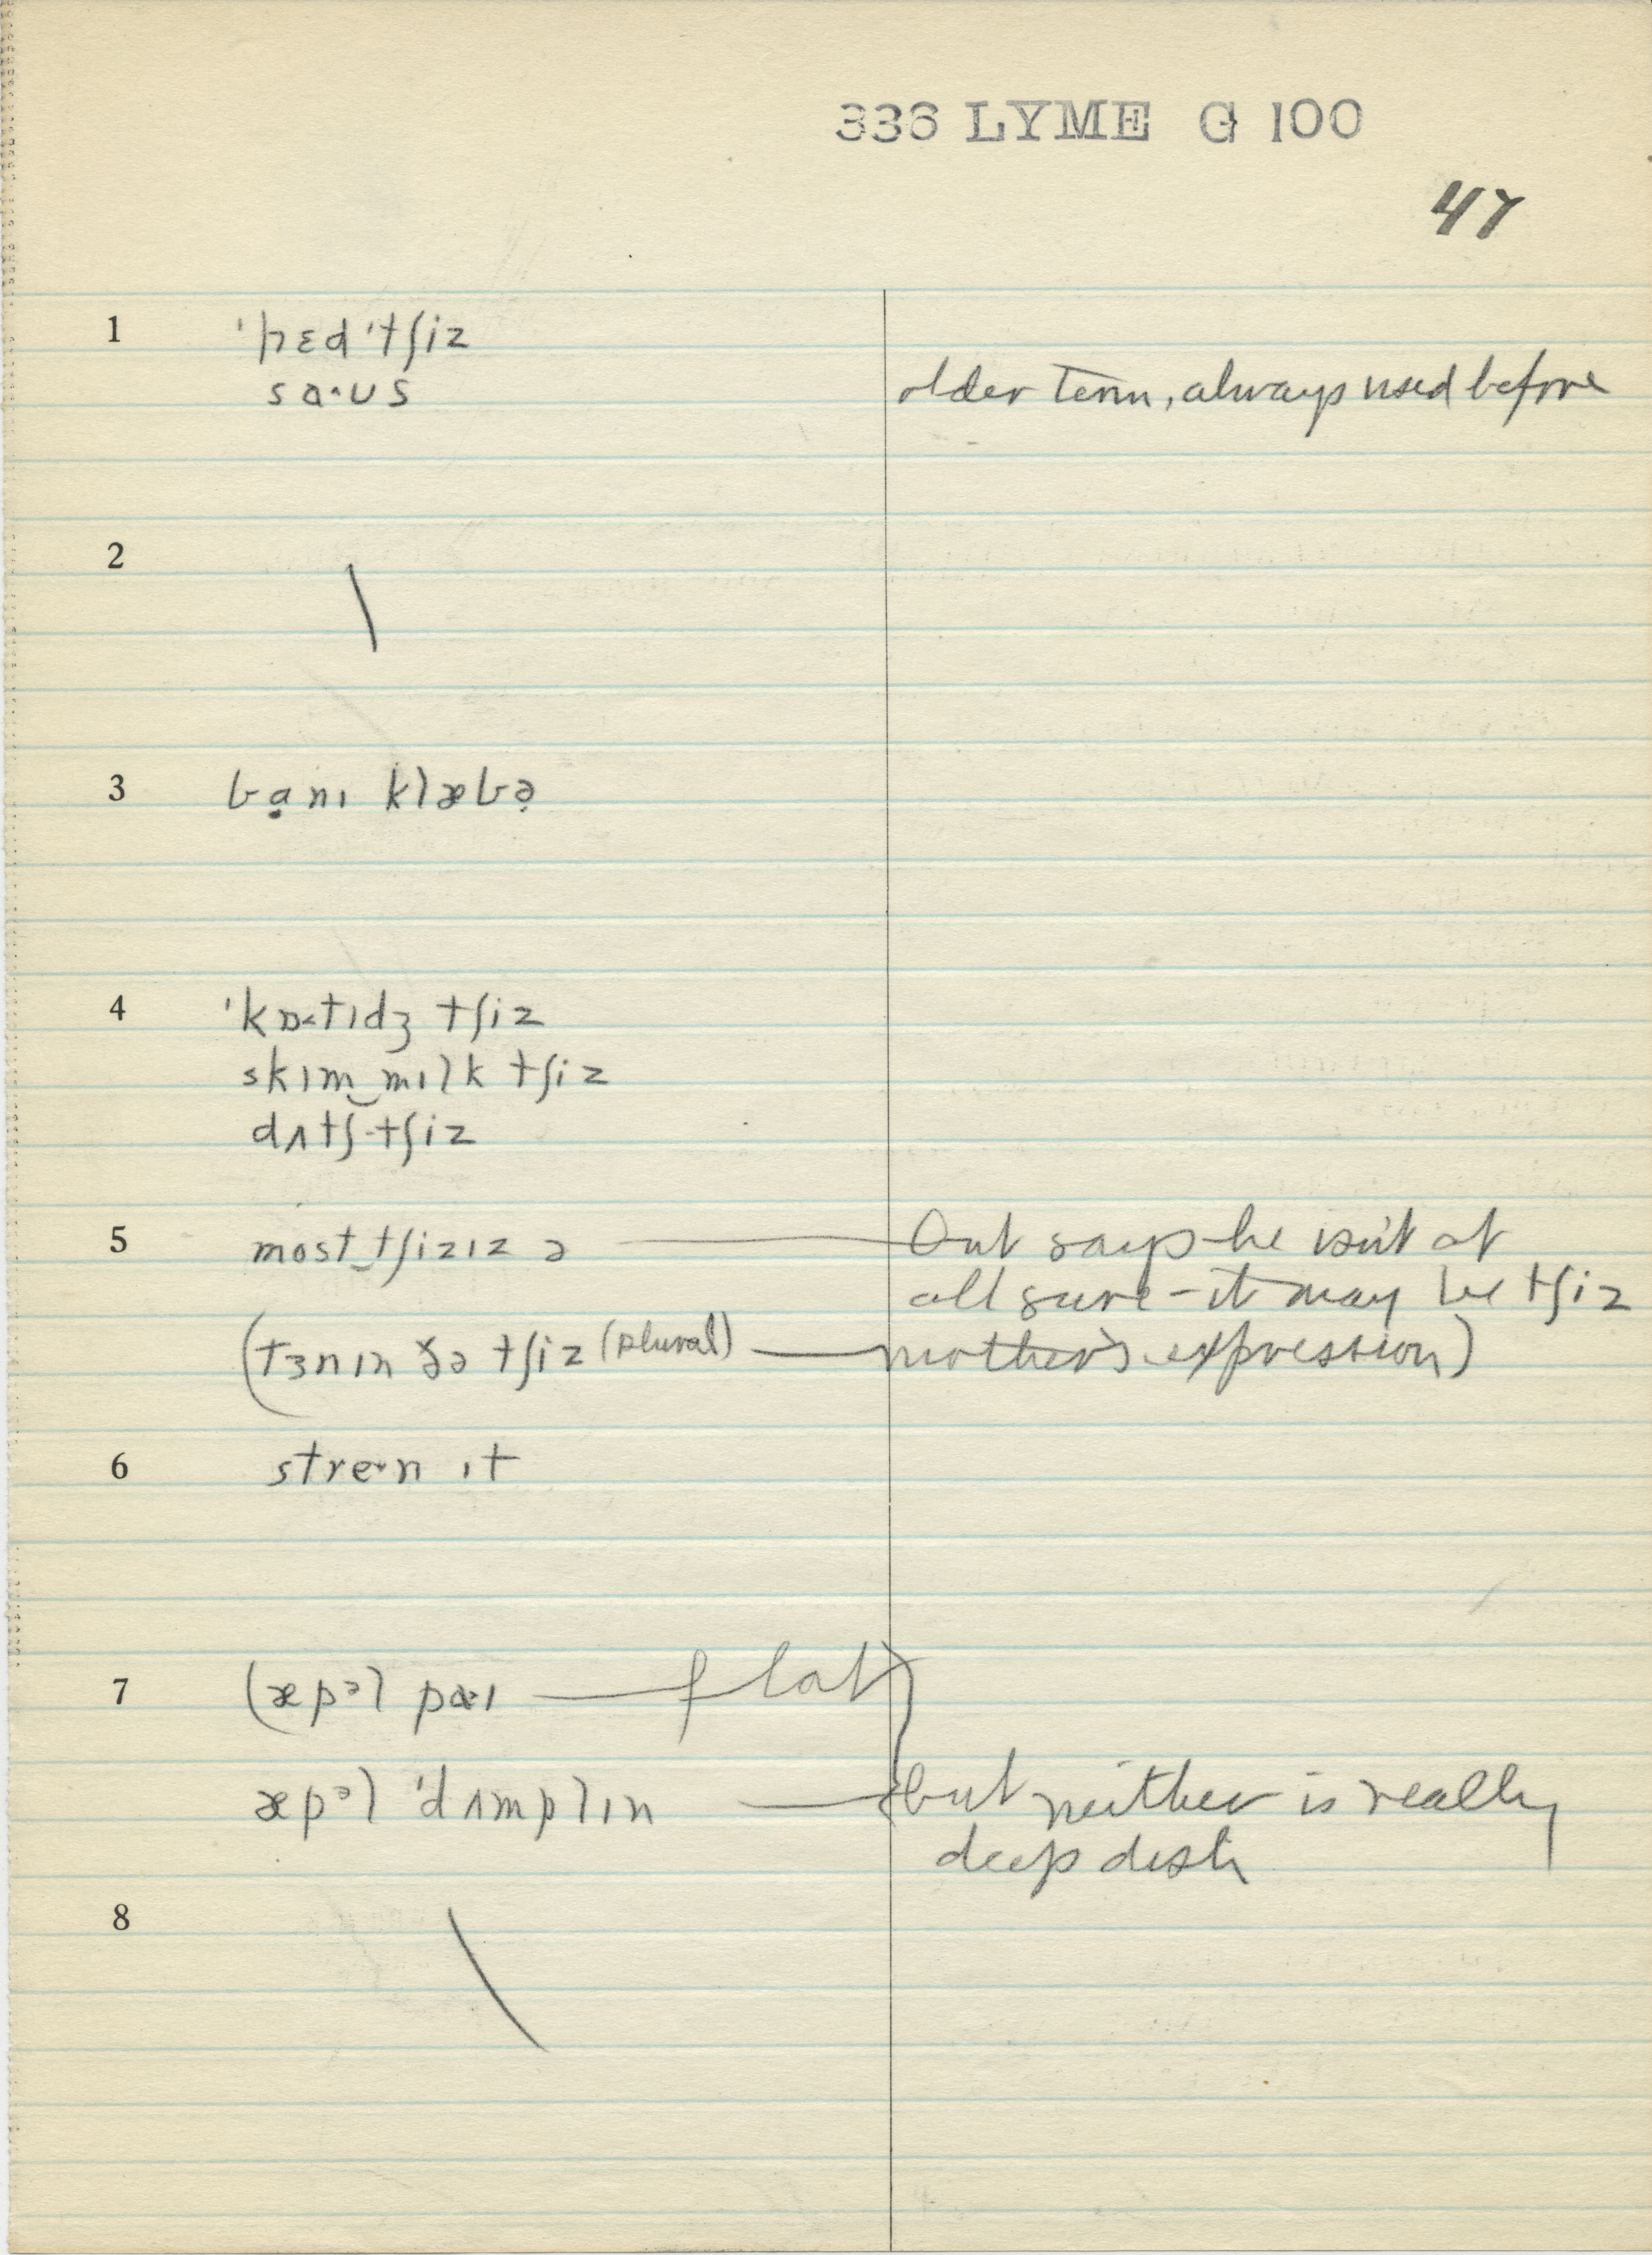 336 LYME G 100
47
1 ˈhɛd ˈtʃiz
saˑus older term, always used before
2
3 bạnɪ klæbə̣
4 ˈkɒ˂tɪdʒ tʃiz
skɪm‿mɪlk tʃiz
dʌtʃ-tʃiz
5 most‿tʃizɪz ə — but says he isn't at
all sure - it may be tʃiz
(tɜnɪn ðə tʃiz (plural) — mother's expression)
6 streˑn ɪt
7 (æpᵊl paˑɪ — flat
æpᵊl ˈdʌmplɪn — but neither is really
deep dish
8